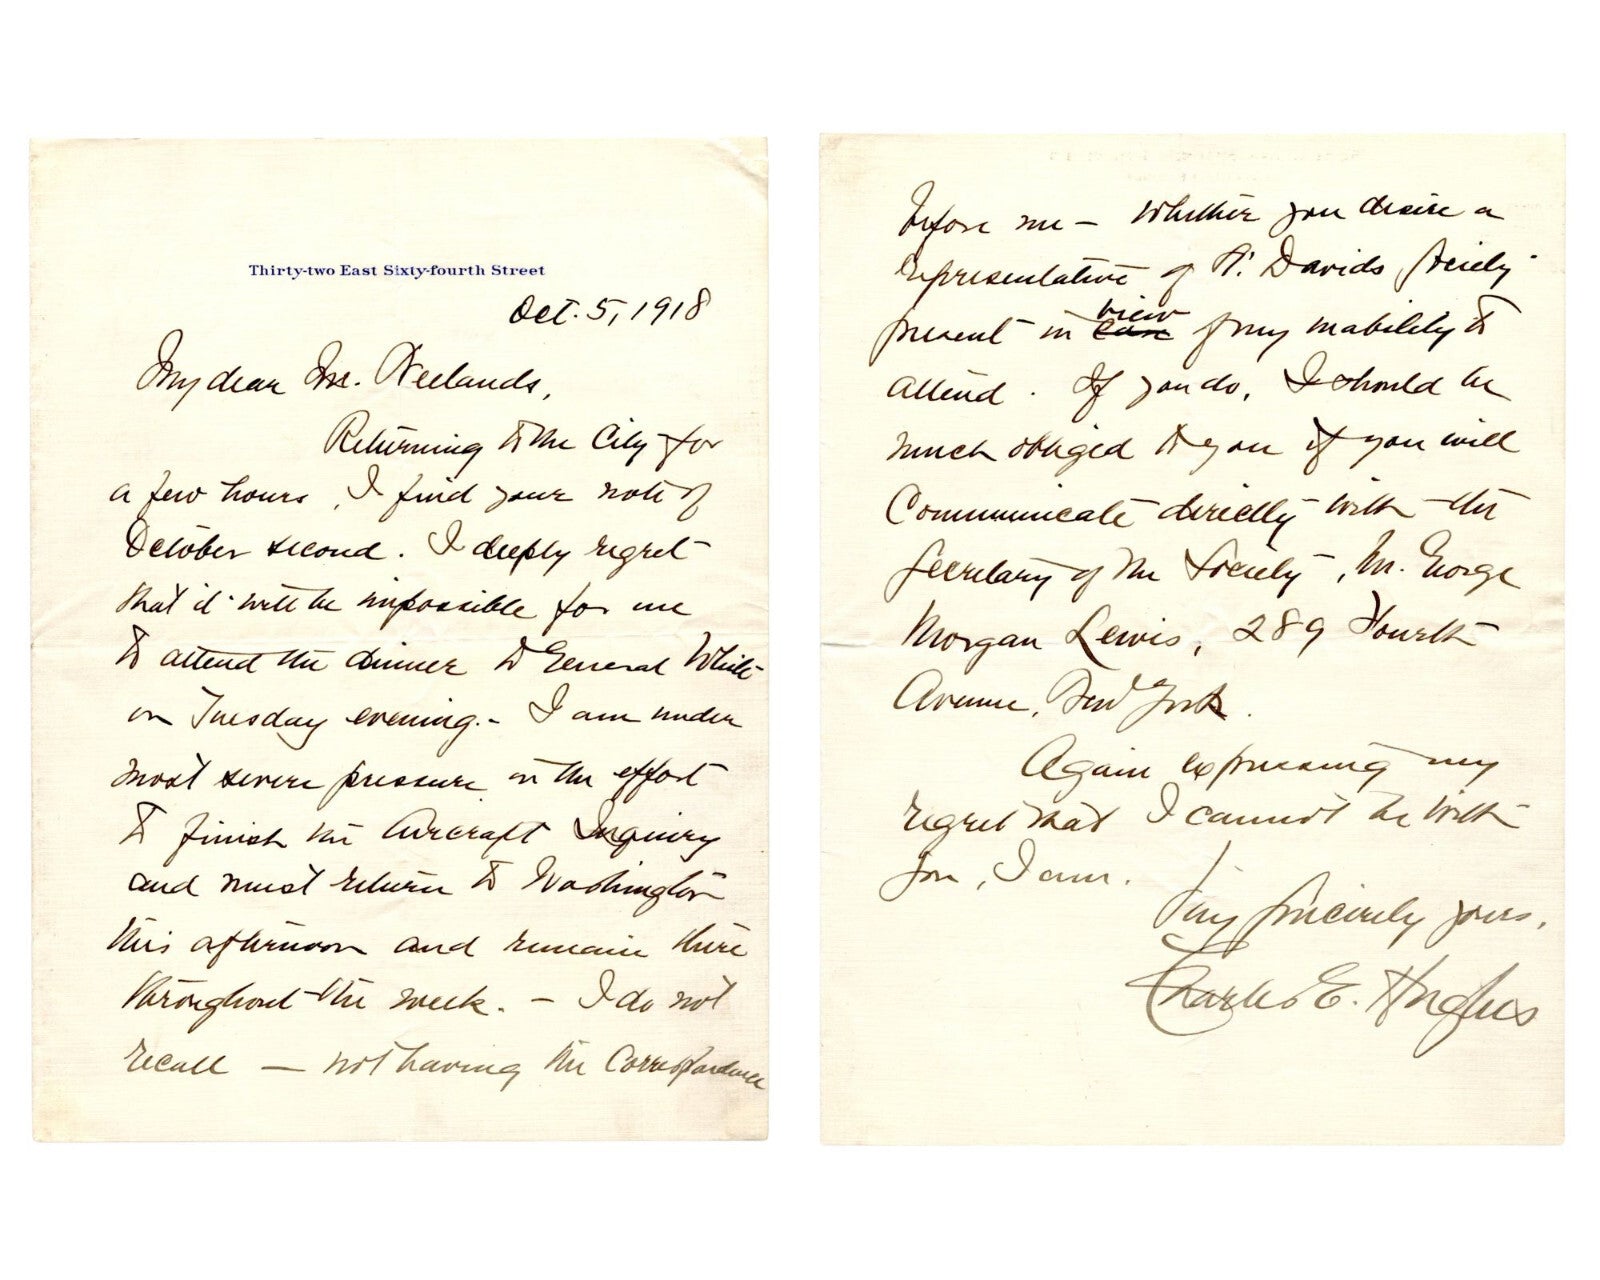 Thirty-two East Sixty-fourth Street
Oct. 5, 1918
My dear Mr.
Returning to the City for
a few hours, I find your note of
October second. I deeply regret
that it will be impossible for me
to attend the dinner to General White
on Tuesday evening. - I am under
most severe pressure in the effort
to finish the Aircraft Inquiry
and must return to Washington
this afternoon and remain there
throughout the week. - I do not
recall — not having the Correspondence
before me - whether you desire a
representative of St. Davids Society
present in view
case of my inability to
attend. If you do, I should be
much obliged to you if you will
Communicate directly with the
Secretary of the Society, Mr. George
Morgan Lewis, 289 Fourth
Avenue, New York.
Again expressing my
regret that I cannot be with
you, I am.
Very sincerely yours,
Charles E. Hughes